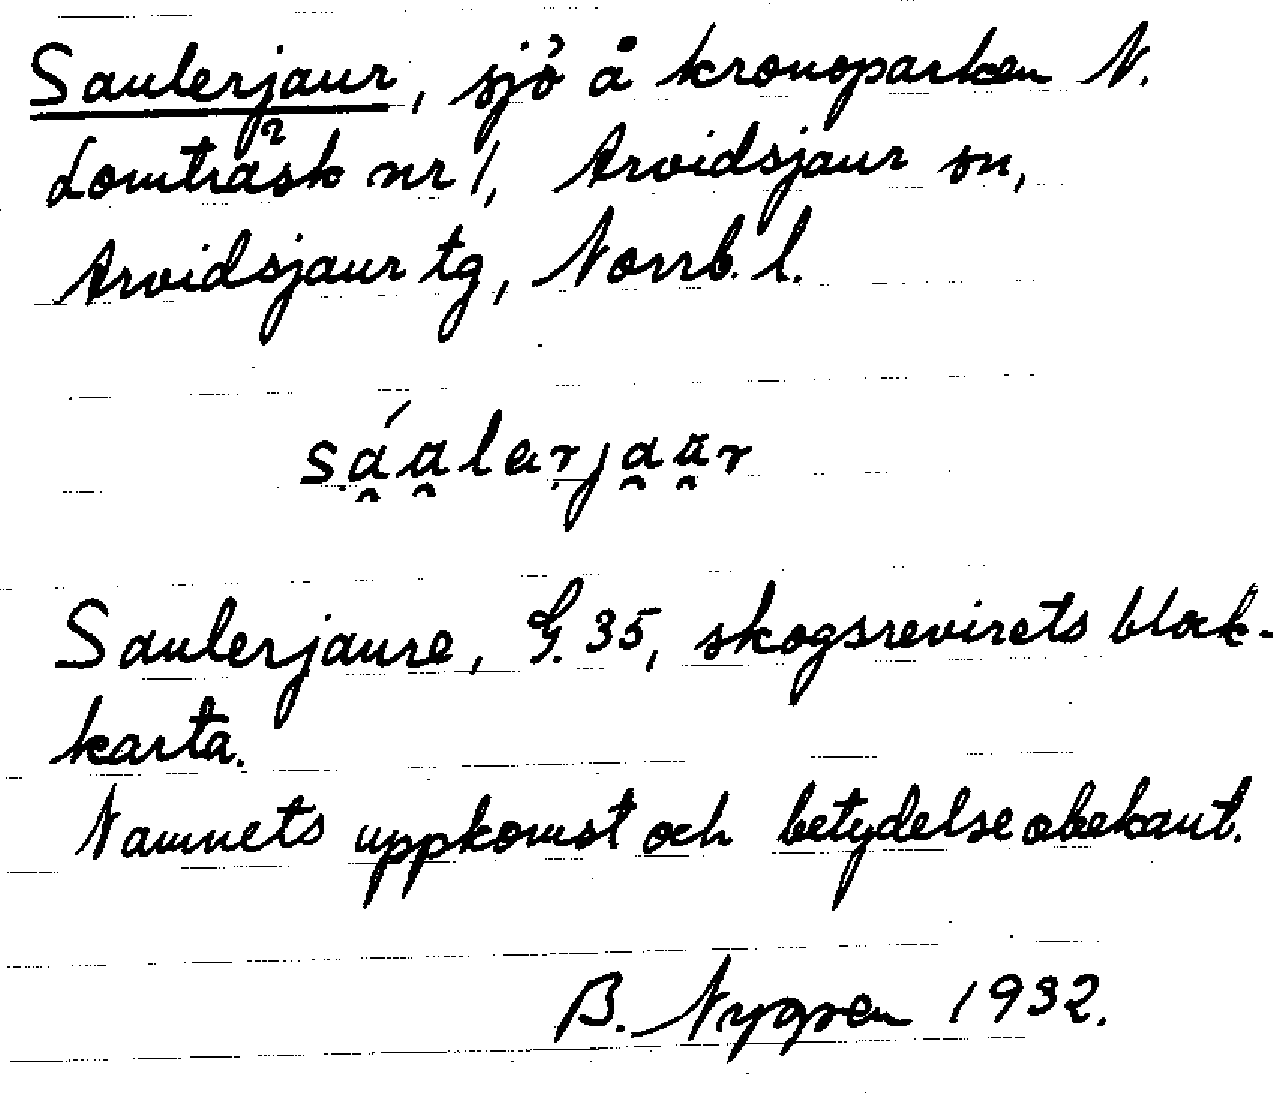 Saulerjaur, sjö å kronoparken N.
Lomträsk nr 1, Arvidsjaur sn,
Arvidsjaur tg, Norrb. l.
sá̯a̯lerja̯a̯r
Saulerjaure, G. 35, skogsrevirets block-
karta.
Namnets uppkomst och betydelse obekant.
B. Nygren 1932.